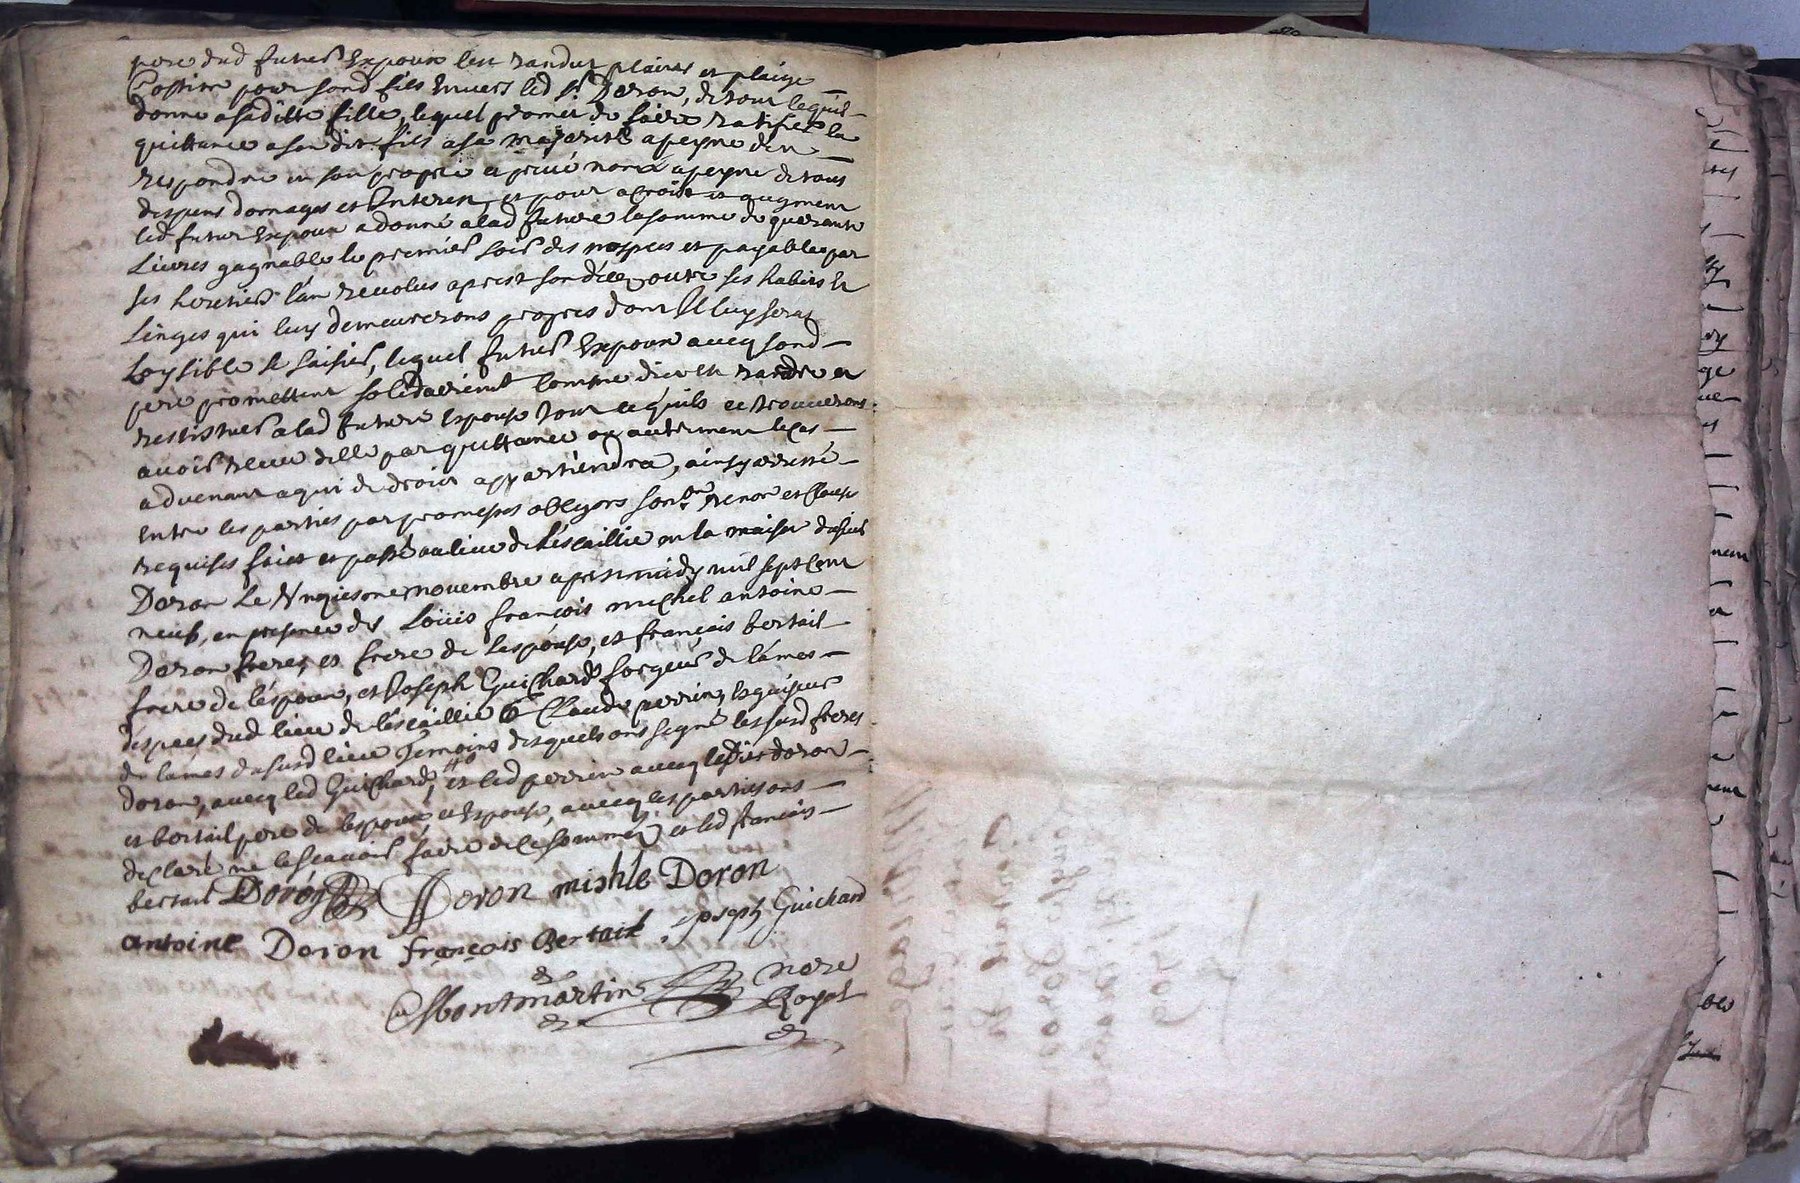 pere dud futur Expoux sest randut plainte et plaige
Caption pour sond fils Envers led Sr. Doron, de tout lequel
donne a saditte fille, lequel promet de faire ratifier la
quittance a son dit fils a sa majorité a peyne den
respondre en son propre et privé nom a peyne de tous
despens domages et Interest, et pour acroist et augment
led futur Expoux a donné a lad future la somme de quarante
Livres gagnable le premier soir des nospces et payable par
ses heritiers lan revolus aprest son décé outre ses habits et
Linges qui luy demeurerons propres dont Il luy serat
Loysible se saisir, lequel futur Expoux avecq sond
pere promettent solidairemt comme dict est randre et
restituer a lad future Espouse tout ce quils ce trouverons
avoir receu delle par quittance ou autrement le cas
advenant a qui de droit appartiendra, ainsy arresté
entre les parties par promesses obligons renon et clauses
requises faict et passé au lieu de Lescaillie en la maison dusieur
Doron Le novembre aprest midy mil sept Cent
neufs, en presence des Louis françois michel antoine
Doron freres et frere de Lespouse, et françois bertail
frere de lespoux, et Joseph Guichard forgeur de lames
despees dud lieu de lescaillie et Claude perrin, Esguiseur
de lames dususd lieu Temoins desquels ons signé les susd freres
doron, avecq led Guichard, et led perrin avecq le doron
et bertail pere de lespoux, et Espouse, avecq les parties ons
declaré ne lescavoir faire de ce sommés et led francois
bertail Doron Doron mishle Doron
antoine Doron françois Bertail Joseph Guichard
Montmartin nore
Royal